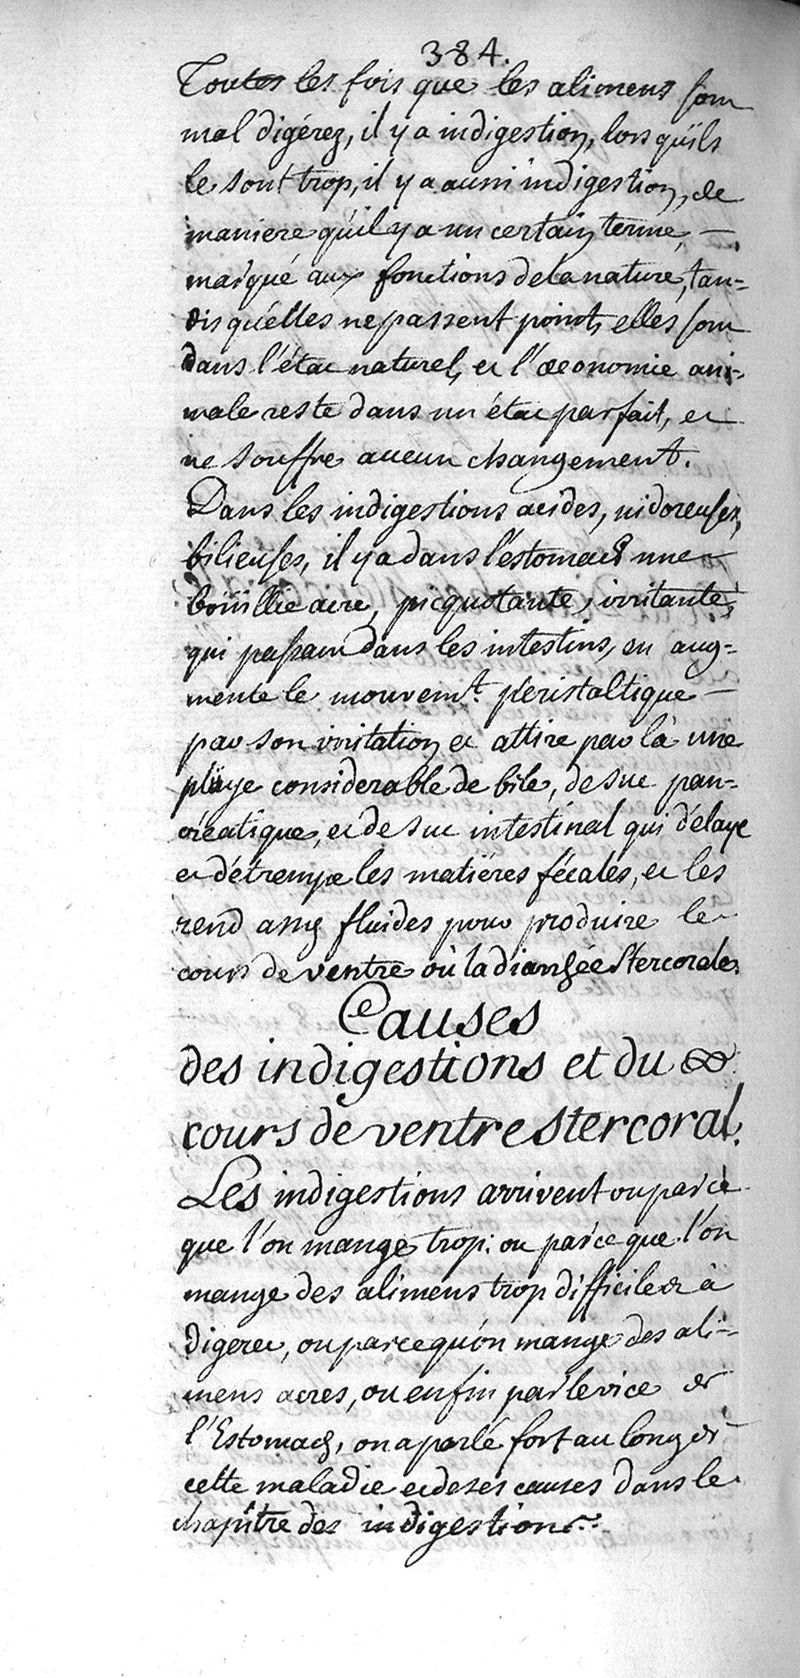 384.
Toutes les fois que les alimens sont
mal digérez, il y a indigestion, lors qu'ils
le sont trop, il y a aussi indigestion, de
maniere qu'il y a un certain terme, —
marqué aux fonctions de la nature, tan-
dis qu'elles ne passent point, elles sont
dans l'état naturel, et l'œconomie ani-
male reste dans un état parfait, et
ne souffre aucun changement.
Dans les indigestions acides, nidoreuses,
bilieuses, il y a dans l'estomach une
boüillie acre, picquotante, irritante,
qui passant dans les intestins, en aug-
mente le mouvemt. péristaltique —
par son irritation et attire par là une
plüye considerable de bile, de suc pan-
créatique, et de suc intestinal qui délaye
et détrempe les matiéres fécales, et les
rend assez fluides pour produire le
cours de ventre où la diarrhée stercorale.
Causes
des indigestions et du
cours de ventre stercoral.
Les indigestions arrivent ou parce
que l'on mange trop: ou parce que l'on
mange des alimens trop difficiles à
digerer, ou parce qu'on mange des ali-
mens acres, ou enfin par le vice de
l'Estomach, on a parlé fort au long de
cette maladie et de ses causes dans le
chapître des indigestions.